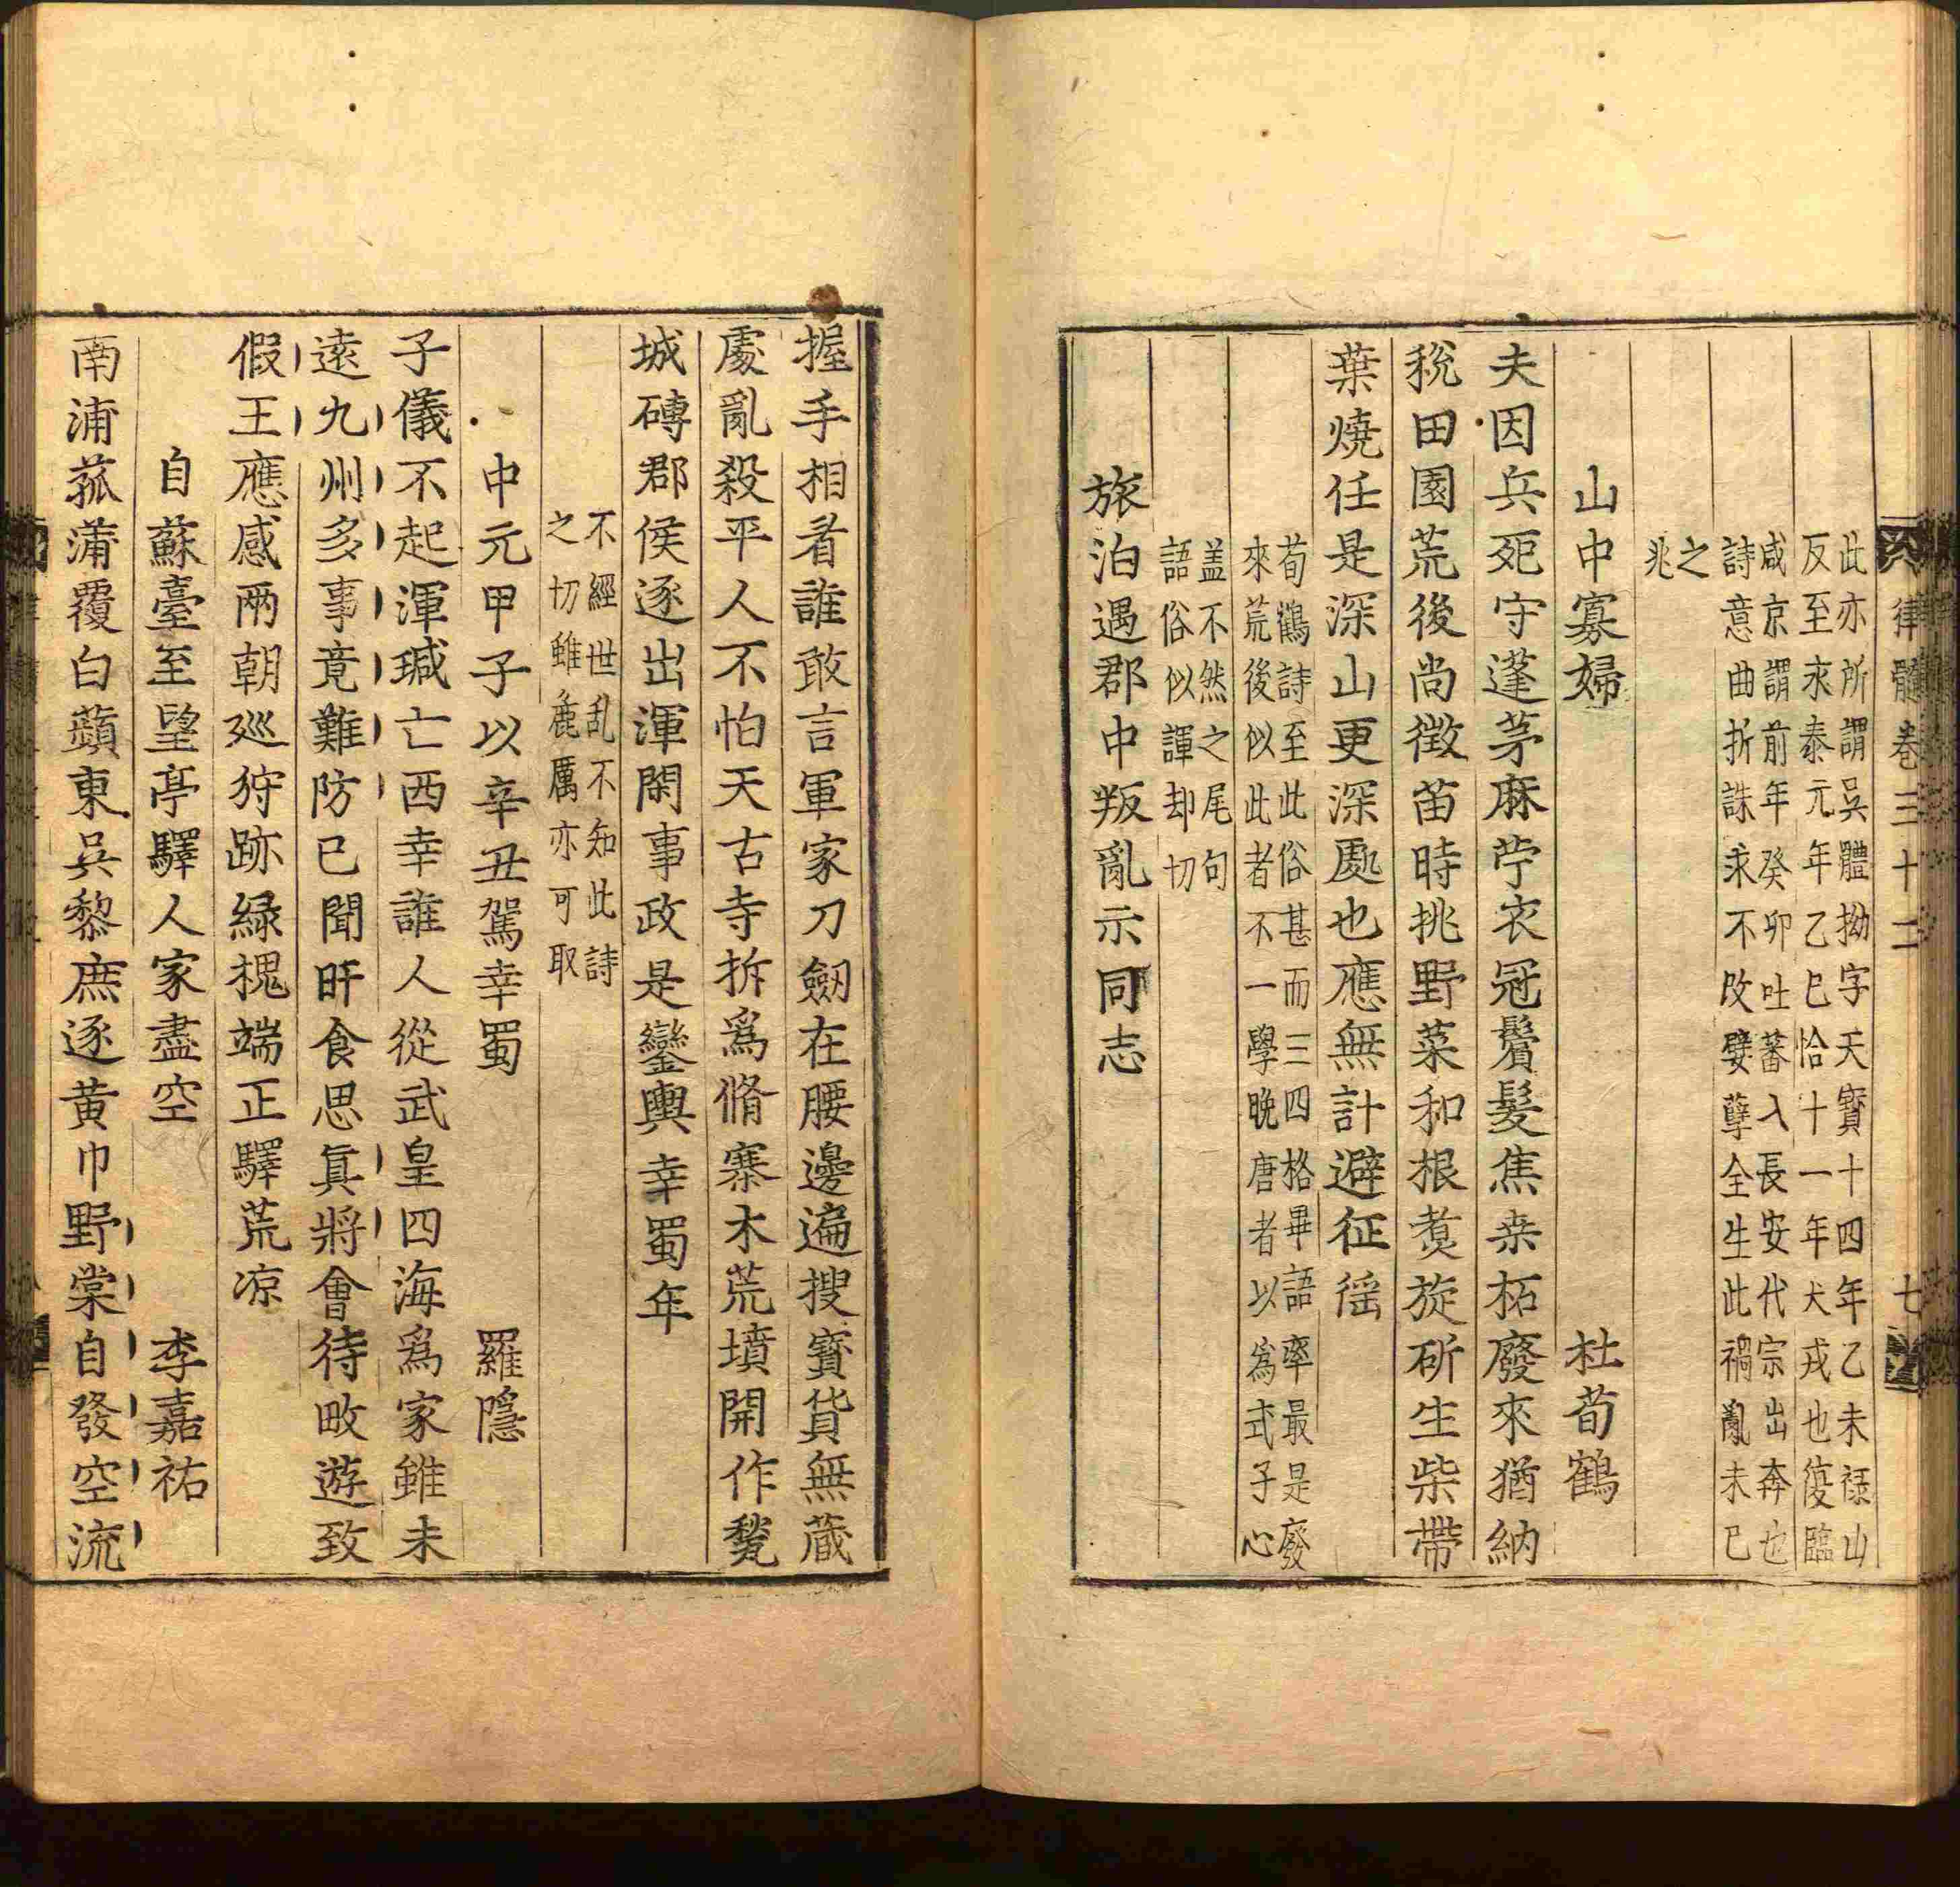 律髓卷三十二
七
此亦所謂吳體拗字天寶十四年乙未祿山
反至永泰元年乙巳恰十一年犬戎也復臨
咸京謂前年癸卯吐蕃入長安代宗出奔也
詩意曲折誅求不改孽孽全生此禍亂未已
之
兆
山中寡婦 杜荀鶴
夫因兵死守蓬茅麻苧衣冠鬢髮焦桒柘廢來猶納
稅田園荒後尚徵苗時挑野菜和根煑旋斫生柴帶
葉燒任是深山更深處也應無計避征徭
荀鶴詩至此俗甚而三四格畢語率最是廢
來荒後似此者不一學晚唐者以爲式子心
盖不然之尾句
語俗似諢却切
旅泊遇郡中叛亂示同志
握手相看誰敢言軍家刀劒在腰邊遍搜寳貨無蔵
處亂殺平人不怕天古寺拆爲脩寨木荒墳開作甃
城磚郡侯逐出渾閑事政是鑾輿幸蜀年
不經世乱不知此詩
之切雖鹿厲亦可取
中元甲子以辛丑駕幸蜀 羅隱
子儀不起渾瑊亡西幸誰人從武皇四海爲家雖未
遠九州多事竟難防已聞旰食思眞將會待畋遊致
假王應感兩朝廵狩跡緑槐端正驛荒凉
自蘇臺至望亭驛人家盡空 李嘉祐
南浦菰蒲覆白蘋東吳黎庶逐黄巾野棠自發空流